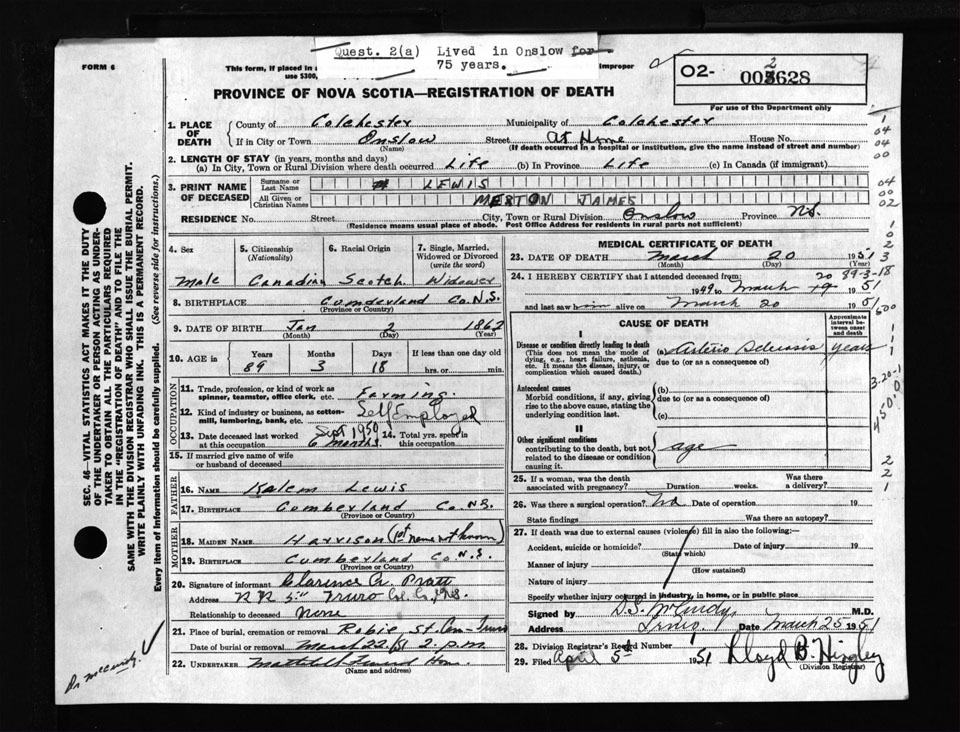 Quest. 2(a) Lived in Onslow for
75 years.
FORM 6
This form, if placed in a
use $300,
improper
O2-
003628
2
For use of the Department only
PROVINCE OF NOVA SCOTIA—REGISTRATION OF DEATH
1. PLACE OF DEATH
County of Colchester Municipality of Colchester
If in City or Town Onslow Street At Home House No.
(Name) (If death occurred in a hospital or institution, give the name instead of street and number)
2. LENGTH OF STAY (in years, months and days)
(a) In City, Town or Rural Division where death occurred Life (b) In Province Life (c) In Canada (if immigrant)
3. PRINT NAME OF DECEASED
Surname or Last Name LEWIS
All Given or Christian Names MERTON JAMES
RESIDENCE No. Street City, Town or Rural Division Onslow Province N.S.
(Residence means usual place of abode. Post Office Address for residents in rural parts not sufficient)
4. Sex Male
5. Citizenship (Nationality) Canadian
6. Racial Origin Scotch
7. Single, Married, Widowed or Divorced (write the word) Widower
8. BIRTHPLACE Cumderland Co. N.S.
(Province or Country)
9. DATE OF BIRTH Jan 2 1862
(Month) (Day) (Year)
10. AGE in Years 89 Months 3 Days 18 If less than one day old hrs. or min.
OCCUPATION
11. Trade, profession, or kind of work as spinner, teamster, office clerk, etc. Farming
12. Kind of industry or business, as cotton-mill, lumbering, bank, etc. Self Employed
13. Date deceased last worked at this occupation Sept 1950 6 months.
14. Total yrs. spent in this occupation
15. If married give name of wife or husband of deceased
FATHER
16. NAME Kalem Lewis
17. BIRTHPLACE Cumberland Co. N.S.
(Province or Country)
MOTHER
18. MAIDEN NAME Harrison (1st name not known)
19. BIRTHPLACE Cumberland Co. N.S.
(Province or Country)
20. Signature of informant Clarence A. Pratt
Address R R 5" Truro Col. Co., N.S.
Relationship to deceased None
21. Place of burial, cremation or removal Robie St. Cem - Truro
Date of burial or removal March 22/51 2 p.m.
22. UNDERTAKER Home
MEDICAL CERTIFICATE OF DEATH
23. DATE OF DEATH March 20 1951
(Month) (Day) (Year)
24. I HEREBY CERTIFY that I attended deceased from:
1949 to March 20 1951
and last saw him alive on March 20 1951
89-3-18
CAUSE OF DEATH
Approximate interval between onset and death
I
Disease or condition directly leading to death
(This does not mean the mode of dying, e.g., heart failure, asthenia, etc. It means the disease, injury, or complication which caused death.)
(a) Arterio Sclerosis years
due to (or as a consequence of)
Antecedent causes
Morbid conditions, if any, giving rise to the above cause, stating the underlying condition last.
(b)
due to (or as a consequence of)
(c)
II
Other significant conditions
contributing to the death, but not related to the disease or condition causing it.
age
25. If a woman, was the death associated with pregnancy? Duration weeks. Was there a delivery?
26. Was there a surgical operation? No Date of operation 19
State findings Was there an autopsy?
27. If death was due to external causes (violence) fill in also the following:—
Accident, suicide or homicide? Date of injury 19
(State which)
Manner of injury
(How sustained)
Nature of injury
Specify whether injury occurred in industry, in home, or in public place
Signed by D.S. McCurdy M.D.
Address Truro Date March 25 1951
28. Division Registrar's Record Number
29. Filed April 5th 1951 Lloyd B. Hingley
(Division Registrar)
SEC. 46—VITAL STATISTICS ACT MAKES IT THE DUTY
OF THE UNDERTAKER OR PERSON ACTING AS UNDER-
TAKER TO OBTAIN ALL THE PARTICULARS REQUIRED
IN THE "REGISTRATION OF DEATH" AND TO FILE THE
SAME WITH THE DIVISION REGISTRAR WHO SHALL ISSUE THE BURIAL PERMIT.
WRITE PLAINLY WITH UNFADING INK. THIS IS A PERMANENT RECORD.
Every item of information should be carefully supplied. (See reverse side for instructions.)
Dr mccurdy.
1
04
04
00
04
00
02
3-20-1
450.0
2
2
1